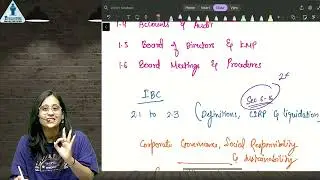 1.4 Accounts & Audit
1.5 Board of Directors & KMP
1.6 Board Meetings & Procedures
IBC
2.1 to 2.3 (Definitions, CIRP & liquidation
Corporate Governance, Social Responsibility
& Sustainability